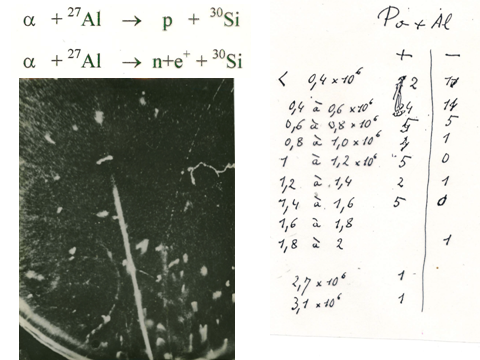 α + ²⁷Al → p + ³⁰Si
α + ²⁷Al → n+e⁺ + ³⁰Si
Po + Al
+ −
< 0,4 × 10⁶
0,4 à 0,6 × 10⁶ 14
0,6 à 0,8 × 10⁶ 5 5
0,8 à 1,0 × 10⁶ 1
1 à 1,2 × 10⁶ 5 0
1,2 à 1,4 2 1
1,4 à 1,6 5 0
1,6 à 1,8
1,8 à 2 1
2,7 × 10⁶ 1
3,1 × 10⁶ 1